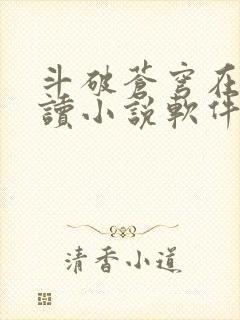 斗破蒼穹在
讀小說軟件
清香小道